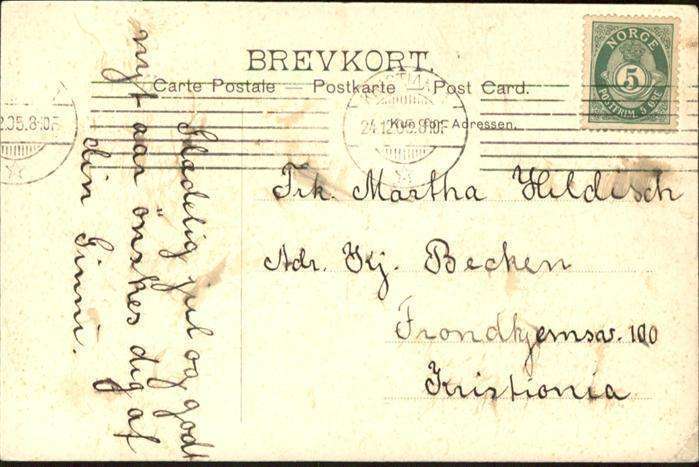 BREVKORT.
Carte Postale — Postkarte — Post Card.
Kun for Adressen.
NORGE
5
POSTFRIM. 5 ØRE
24.12.05.8.0F.
2.05.8.0F.
Frk. Martha Hildisch
Adr. Kj. Becken
Trondhjemsv. 100
Kristiania
Glædelig jul og godt
nyt aar önskes dig af
din Finni.